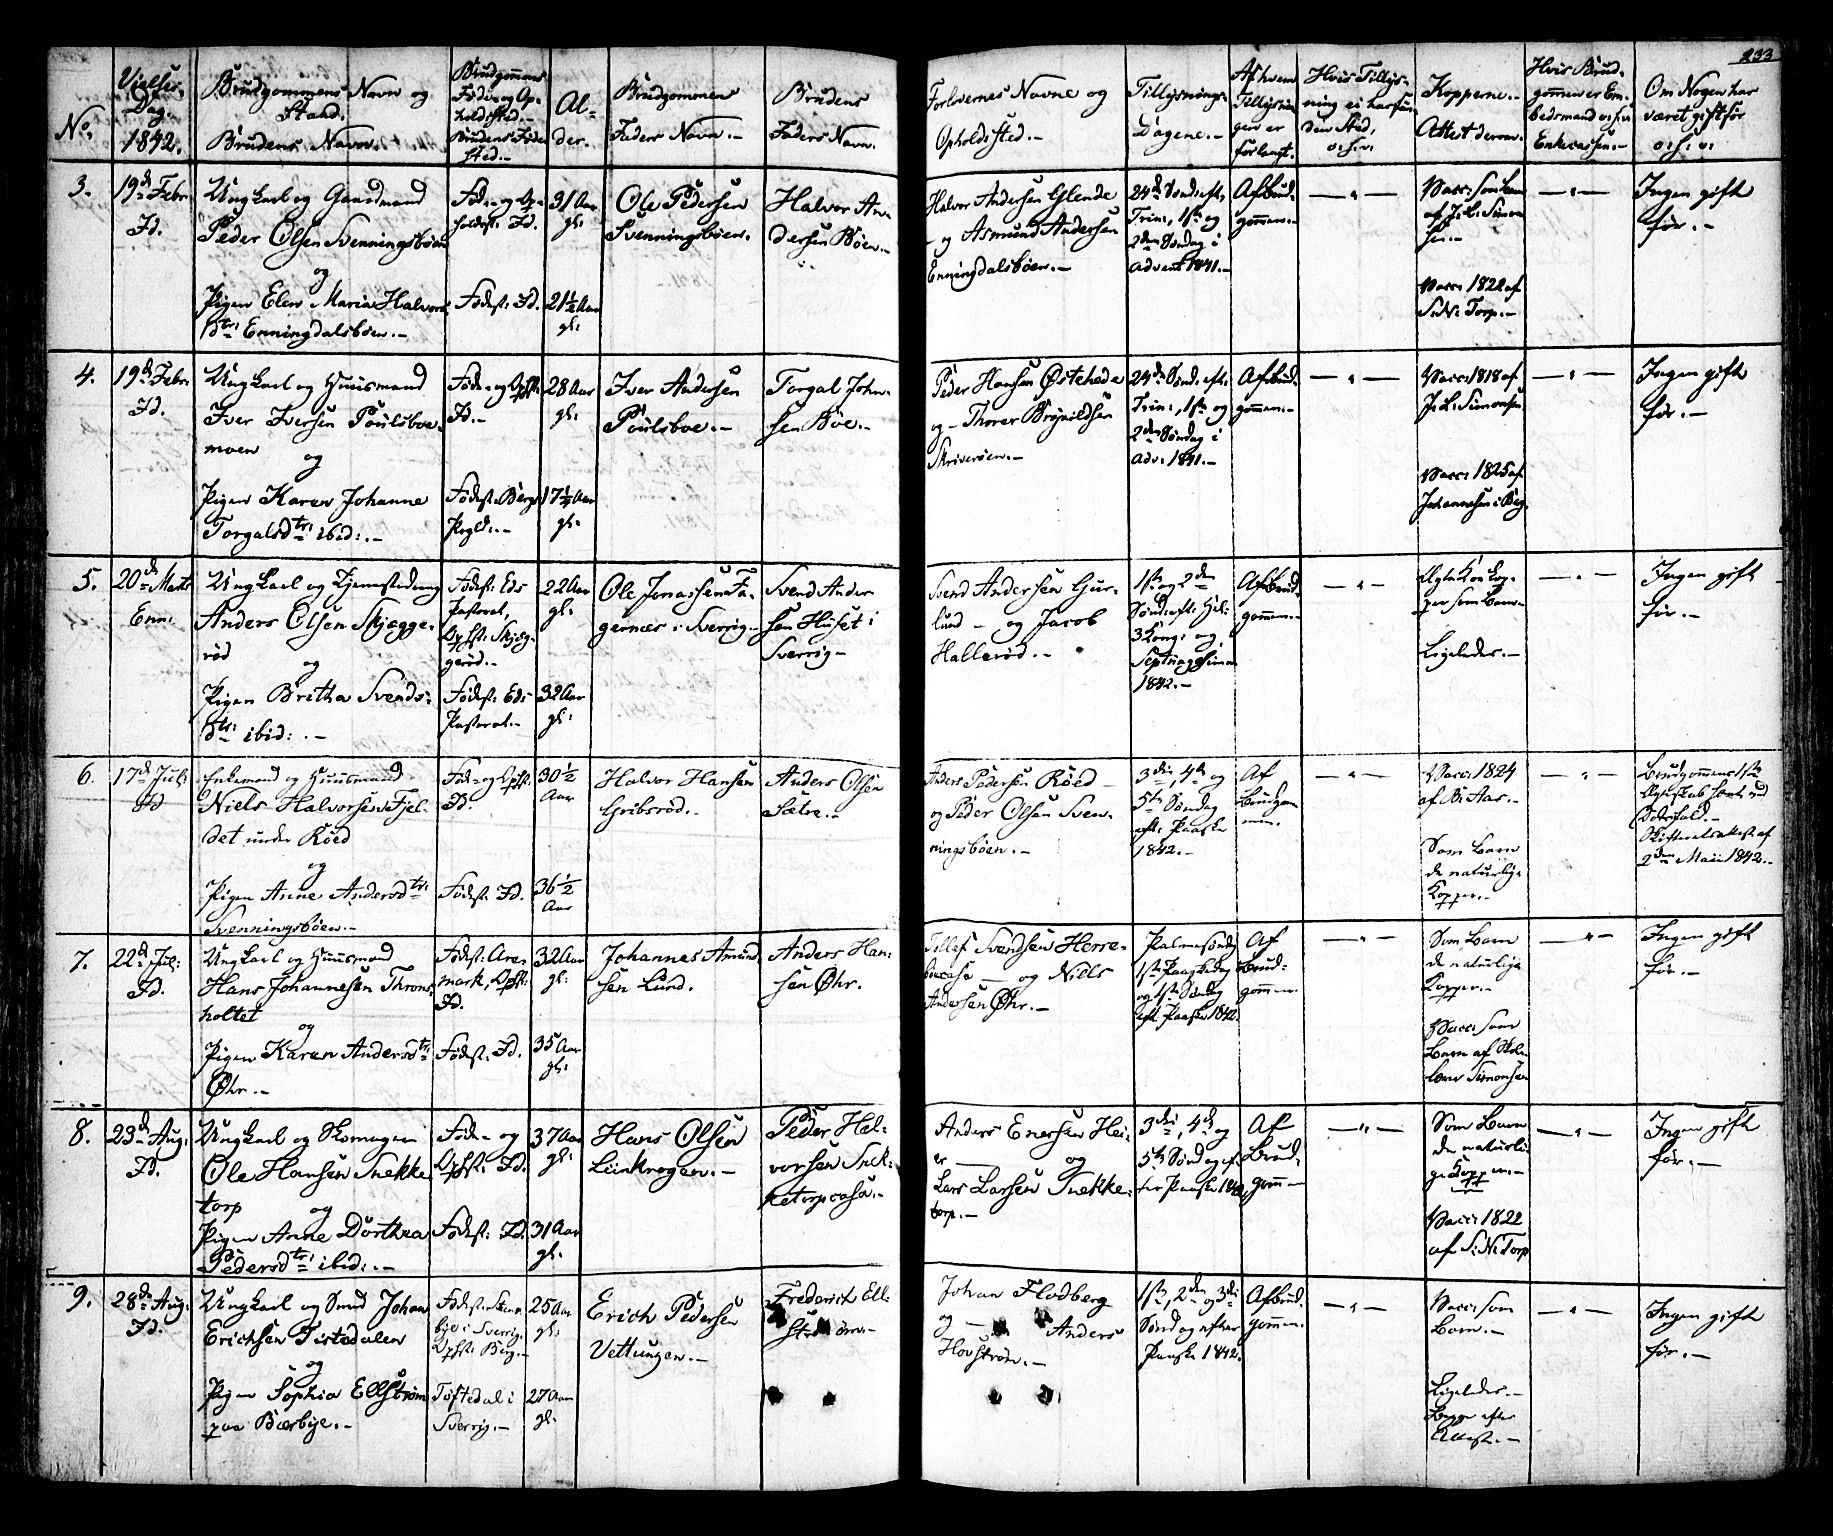 233
No.
Vielses-
Dag.
1842.
Brudgommens Navn og
Stand.
Brudens Navn.
Brudgommens
Føde- og Op-
holdssted.-
Brudens Føde-
sted.-
Al-
der.
Brudgommens
Faders Navn.-
Brudens
Faders Navn.
Forlovernes Navne og
Opholdssted.-
Tillysnings-
Dagene.-
Af hvem
Tillysnin-
gen er
forlangt.
Hvis Tillys-
ning ei har fun-
den Sted,
o: s: v:
Kopperne.-
Attest derom.
Hvis Brud-
gommen er Em-
bedsmand o: s: v:
Enkecassen.-
Om Nogen har
været gift før
o: s: v:
3.
19de Febr.
Id.
Ungkarl og Gaardmand
Peder Olsen Svenningsbøen
og
Pigen Elen Maria Halvors
Dtr: Enningdalsbøen.-
Føde- og Op-
holdsst: Id.
Fødest: Id.
31 Aar
gl:
21½ Aar
gl:
Ole Pedersen
Svenningsbøen.
Halvor An-
dersen Bøen.-
Halvor Andersen Glende
og Asmund Andersen
Enningdalsbøen.-
24de Sønd: eft:
Trin:, 1ste og
2den Søndag i
Advent 1841.-
Af Brud-
gommen.-
Vacc: som Barn
af J: L: Simon
sen.-
Vacc: 1822 af
S: N: Torp.-
Ingen gift
før.-
4.
19de Febr.
Id.
Ungkarl og Huusmand
Iver Iversen Poulsboe-
moen
og
Pigen Karen Johanne
Torgalsdtr: ibid:.-
Føde- og Opst:
Id.-
Fødest: Berg
Prgld:.-
28 Aar
gl:
17½ Aar
gl:
Iver Andersen
Poulsboe.-
Torgal John-
sen Bøe.-
Peder Hansen Østehede
og - Thorer Brynildsen
Skriverøen.-
24de Sønd: eft:
Trin:, 1ste og
2den Søndag i
Adv: 1841.-
Af Brud-
gommen.-
Vacc: 1818 af
J: L: Simonsen.
Vacc: 1825 af
Johannesen i Berg.
Ingen gift
før.-
5.
20de Marts
Enn:
Ungkarl og Hjemstedeng
Anders Olsen Skjægge-
rød
og
Pigen Bretha Svends-
Dtr: ibid:.-
Fødest: Eds
Pastorat,
Opst: Skjæg-
gerød.-
Fødest: Eds
Pastorat.-
22 Aar
gl:
32 Aar
gl:
Ole Jonassen Fa-
gernæs i Sverrig.-
Svend Ander
sen Huset i
Sverrig-
Svend Andersen Gur-
lund - og Jacob
Hallerød.-
1ste og 2den
Sønd: eft: Hel:
3 Kong: og
Septuagesima
1842.-
Af Brud-
gommen.-
Ligeledes.-
Ingen gift
før.-
6.
17de Juli
Id
Enkemand og Huusmand
Niels Halvorsen Fjel-
det under Røed
og
Pigen Anne Andersdtr:
Svenningsbøen.-
Føde- og Opst:
Id.
Fødest: Id.
30½
Aar
36½
Aar
Halvor Hansen
Gribsrød.
Anders Olsen
Sætre.-
Anders Pedersen Røed -
og Peder Olsen Sven-
ningsbøen.-
3die, 4de og
5te Søndag
eft: Paaske
1842.-
Af
Brudgom
men.
Vacc: 1824
af B: Aas.-
Som Barn
de naturlige
Kopper.-
Brudgommens 1ste
Skifteretsattest af
2den Maii 1842.-
7.
22de Jul:
Id.
Ungkarl og Huusmand
Hans Johannesen Throns-
holtet
og
Pigen Karen Andersdtr:
Øhr.-
Fødest: Are-
mark, Opst:
Id.
Fødest: Id.
32 Aar
gl:
35 Aar
gl:
Johannes Amund
sen Lund.-
Anders Han-
sen Øhr.
Tollef Svendsen Herre-
- og Niels
Andersen Øhr.-
Palmesøndag
1ste Paaskedag
og 1ste Søndag
eft. Paaske 1842.
Af
Brud-
gommen.
Som Barn
de naturlige
Kopper.-
Vacc: som
Barn af Skole
lærer Simonsen
Ingen gift
før.-
8.
23de Aug:
Id.
Ungkarl og Skomager
Ole Hansen Snekke
torp
og
Pigen Anne Dorthea
Pedersdtr: ibid:.-
Føde- og
Opst: Id.
Fødest: Id.
37 Aar
gl:
31 Aar
gl:
Hans Olsen
Linkrogen.-
Peder Hal-
vorsen Snek-
ketorpcasa.-
Anders Enersen Hei-
er - og
Lars Larsen Snekke-
torp.-
3die, 4de og
5te Søndag ef-
ter Paaske 1842.
Af
Brud-
gomm-
Som Barn
de naturli-
ge Kopper.-
Vacc: 1822
af S: N: Torp
Ingen gift
før.-
9.
28de Aug:
Id.
Ungkarl og Smed Johan
Erichsen Tistedalen
og
Pigen Sophia Ellstrøm
paa Bærbye.-
i Sverrig,
Opst: Berg.-
Tøftedal i
Sverrig.-
25 Aar
gl:
27 Aar
gl:
Erich Pedersen
Vettungen.-
Frederich Ell-
strøm.-
Johan Flodberg
og - Anders
Hovstrøm.-
1ste, 2den og 3die
Søndag efter
Paaske 1842.
Af Brud-
gommen.
Vacc: som
Barn.-
Ligeledes.-
Begge efter
Attest.-
Ingen gift
før.-